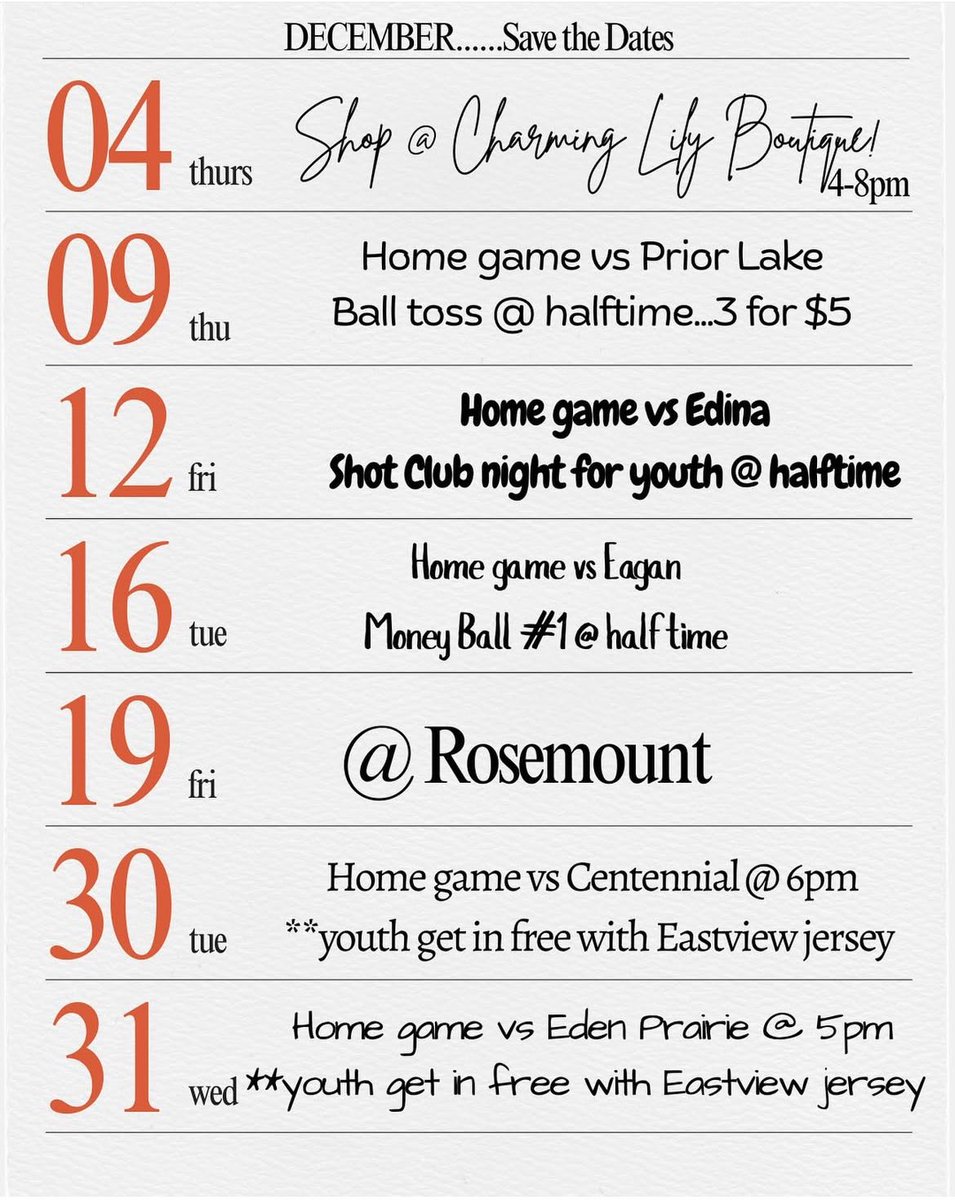 DECEMBER......Save the Dates
04 thurs Shop @ Charming Lily Boutique!
4-8pm
09 thu Home game vs Prior Lake
Ball toss @ halftime...3 for $5
12 fri Home game vs Edina
Shot Club night for youth @ halftime
16 tue Home game vs Eagan
Money Ball #1 @ halftime
19 fri @ Rosemount
30 tue Home game vs Centennial @ 6pm
**youth get in free with Eastview jersey
31 wed Home game vs Eden Prairie @ 5pm
**youth get in free with Eastview jersey